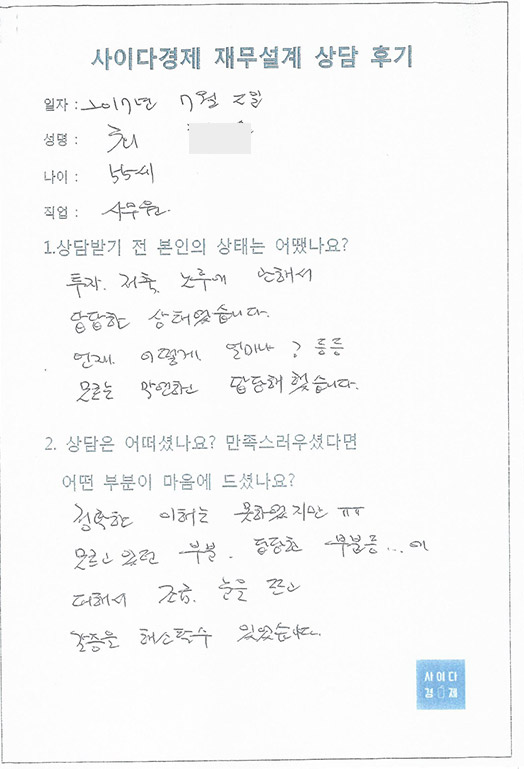 사이다경제 재무설계 상담 후기
일자 : 2017년 7월 2일
성명 : 최
나이 : 55세
직업 : 사무원
1.상담받기 전 본인의 상태는 어땠나요?
투자. 저축, 노후에 대해서
답답한 상태였습니다.
언제. 어떻게. 얼마나? 등등
모르는 막연하고 답답해 했습니다.
2. 상담은 어떠셨나요? 만족스러우셨다면
어떤 부분이 마음에 드셨나요?
정확한 이해는 못하였지만 ㅠㅠ
모르고 있던 부분. 답답한 부분등...에
대해서 조금. 눈을 뜨고
갈증을 해소할수 있었습니다.
사이다
경제